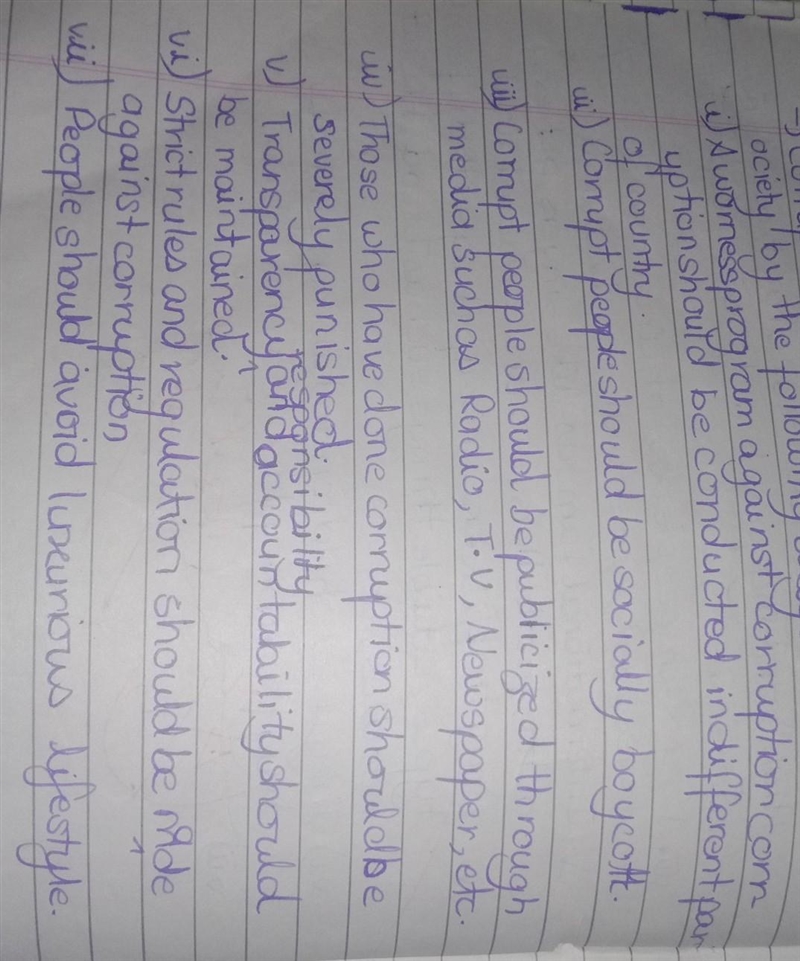 ociety by the following
i) Awarness program against corruption corr
uption should be conducted in different par
of country.
ii) Corrupt people should be socially boycott.
iii) Corrupt people should be publicized through
media such as Radio, T.V, Newspaper, etc.
iv) Those who have done corruption should be
severely punished.
responsibility
v) Transparency ^ and accountability should
be maintained.
vi) Strict rules and regulation should be made
against corruption,
vii) People should avoid luxurious lifestyle.